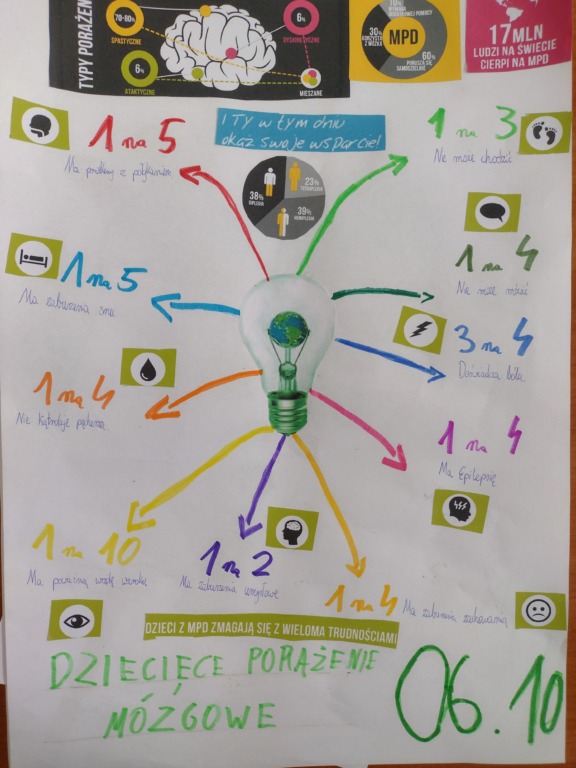 TYPY PORAŻEŃ
70-80%
SPASTYCZNE
6%
DYSKINETYCZNE
6%
ATAKTYCZNE
MIESZANE
30%
KORZYSTA
Z WÓZKA
MPD
60%
PORUSZA SIĘ
SAMODZIELNIE
17MLN
LUDZI NA ŚWIECIE
CIERPI NA MPD
I TY w tym dniu
okaż swoje wsparcie!
1 na 5
Ma problemy z połykaniem
1 na 3
Nie może chodzić
38%
DIPLEGIA
23%
39%
HEMIPLEGIA
1 na 4
Nie może mówić
1 na 5
Ma zaburzenia snu
3 na 4
Doświadcza bólu
1 na 4
Nie kątroluje pęcherza
1 na 4
Ma Epilepsię
1 na 10
Ma poważną wadę wzroku
1 na 2
Ma zaburzenia umysłowe
1 na 4
Ma zaburzenia zachowania
DZIECI Z MPD ZMAGAJĄ SIĘ Z WIELOMA TRUDNOŚCIAMI
DZIECIĘCE PORĄŻENIE
MÓZGOWE
06.10